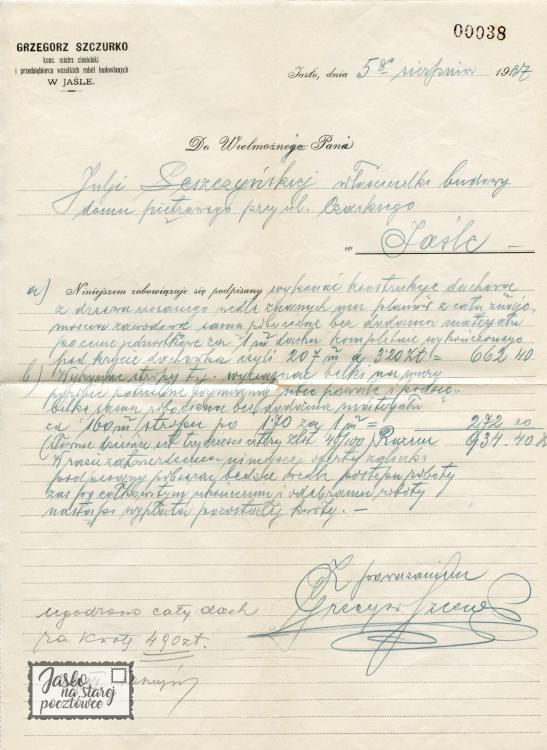 00038
GRZEGORZ SZCZURKO
konc. mistrz ciesielski
i przedsiębiorca wszelkich robót budowlanych
W JAŚLE.
Jasło, dnia 5go sierpnia 1937
Do Wielmożnego Pana
Julji Leszczyńskiej właścicielki budowy
domu piętrowego przy ul. Czackiego
w Jaśle –
a) Niniejszem zobowiązuje się podpisany wykonać konstrukcję dachową
z drzewa wedle znanych mu planów z całą znajo-
mością zawodową sama robocizna bez dodania materjału
po cenie jednostkowej za 1 m² dachu kompletnie wykończonego
pod krycie dachówką czyli 207 m² a 3·20 zł = 662 40
b) Wykonanie stropy t.j. wyciągnąć belki na mury
i podsie-
bitkę sama robocizna bez dodania materjału
ca 160 m² stropu po 1·70 za 1 m² = 272 00
Słownie dziewięćset trzydzieści cztery złot 40/100 Razem 934·40
W razie zatwierdzenia niniejszej oferty zaliczki
podpisany pobierać będzie wedle postępu roboty
zaś po całkowitym ukończeniu i odebraniu roboty
nastąpi wypłata pozostałej kwoty. –
Z poważaniem
Grzegorz Szczurko
ugodzono cały dach
za kwotę 490 zł.
Jasło
na starej
pocztówce